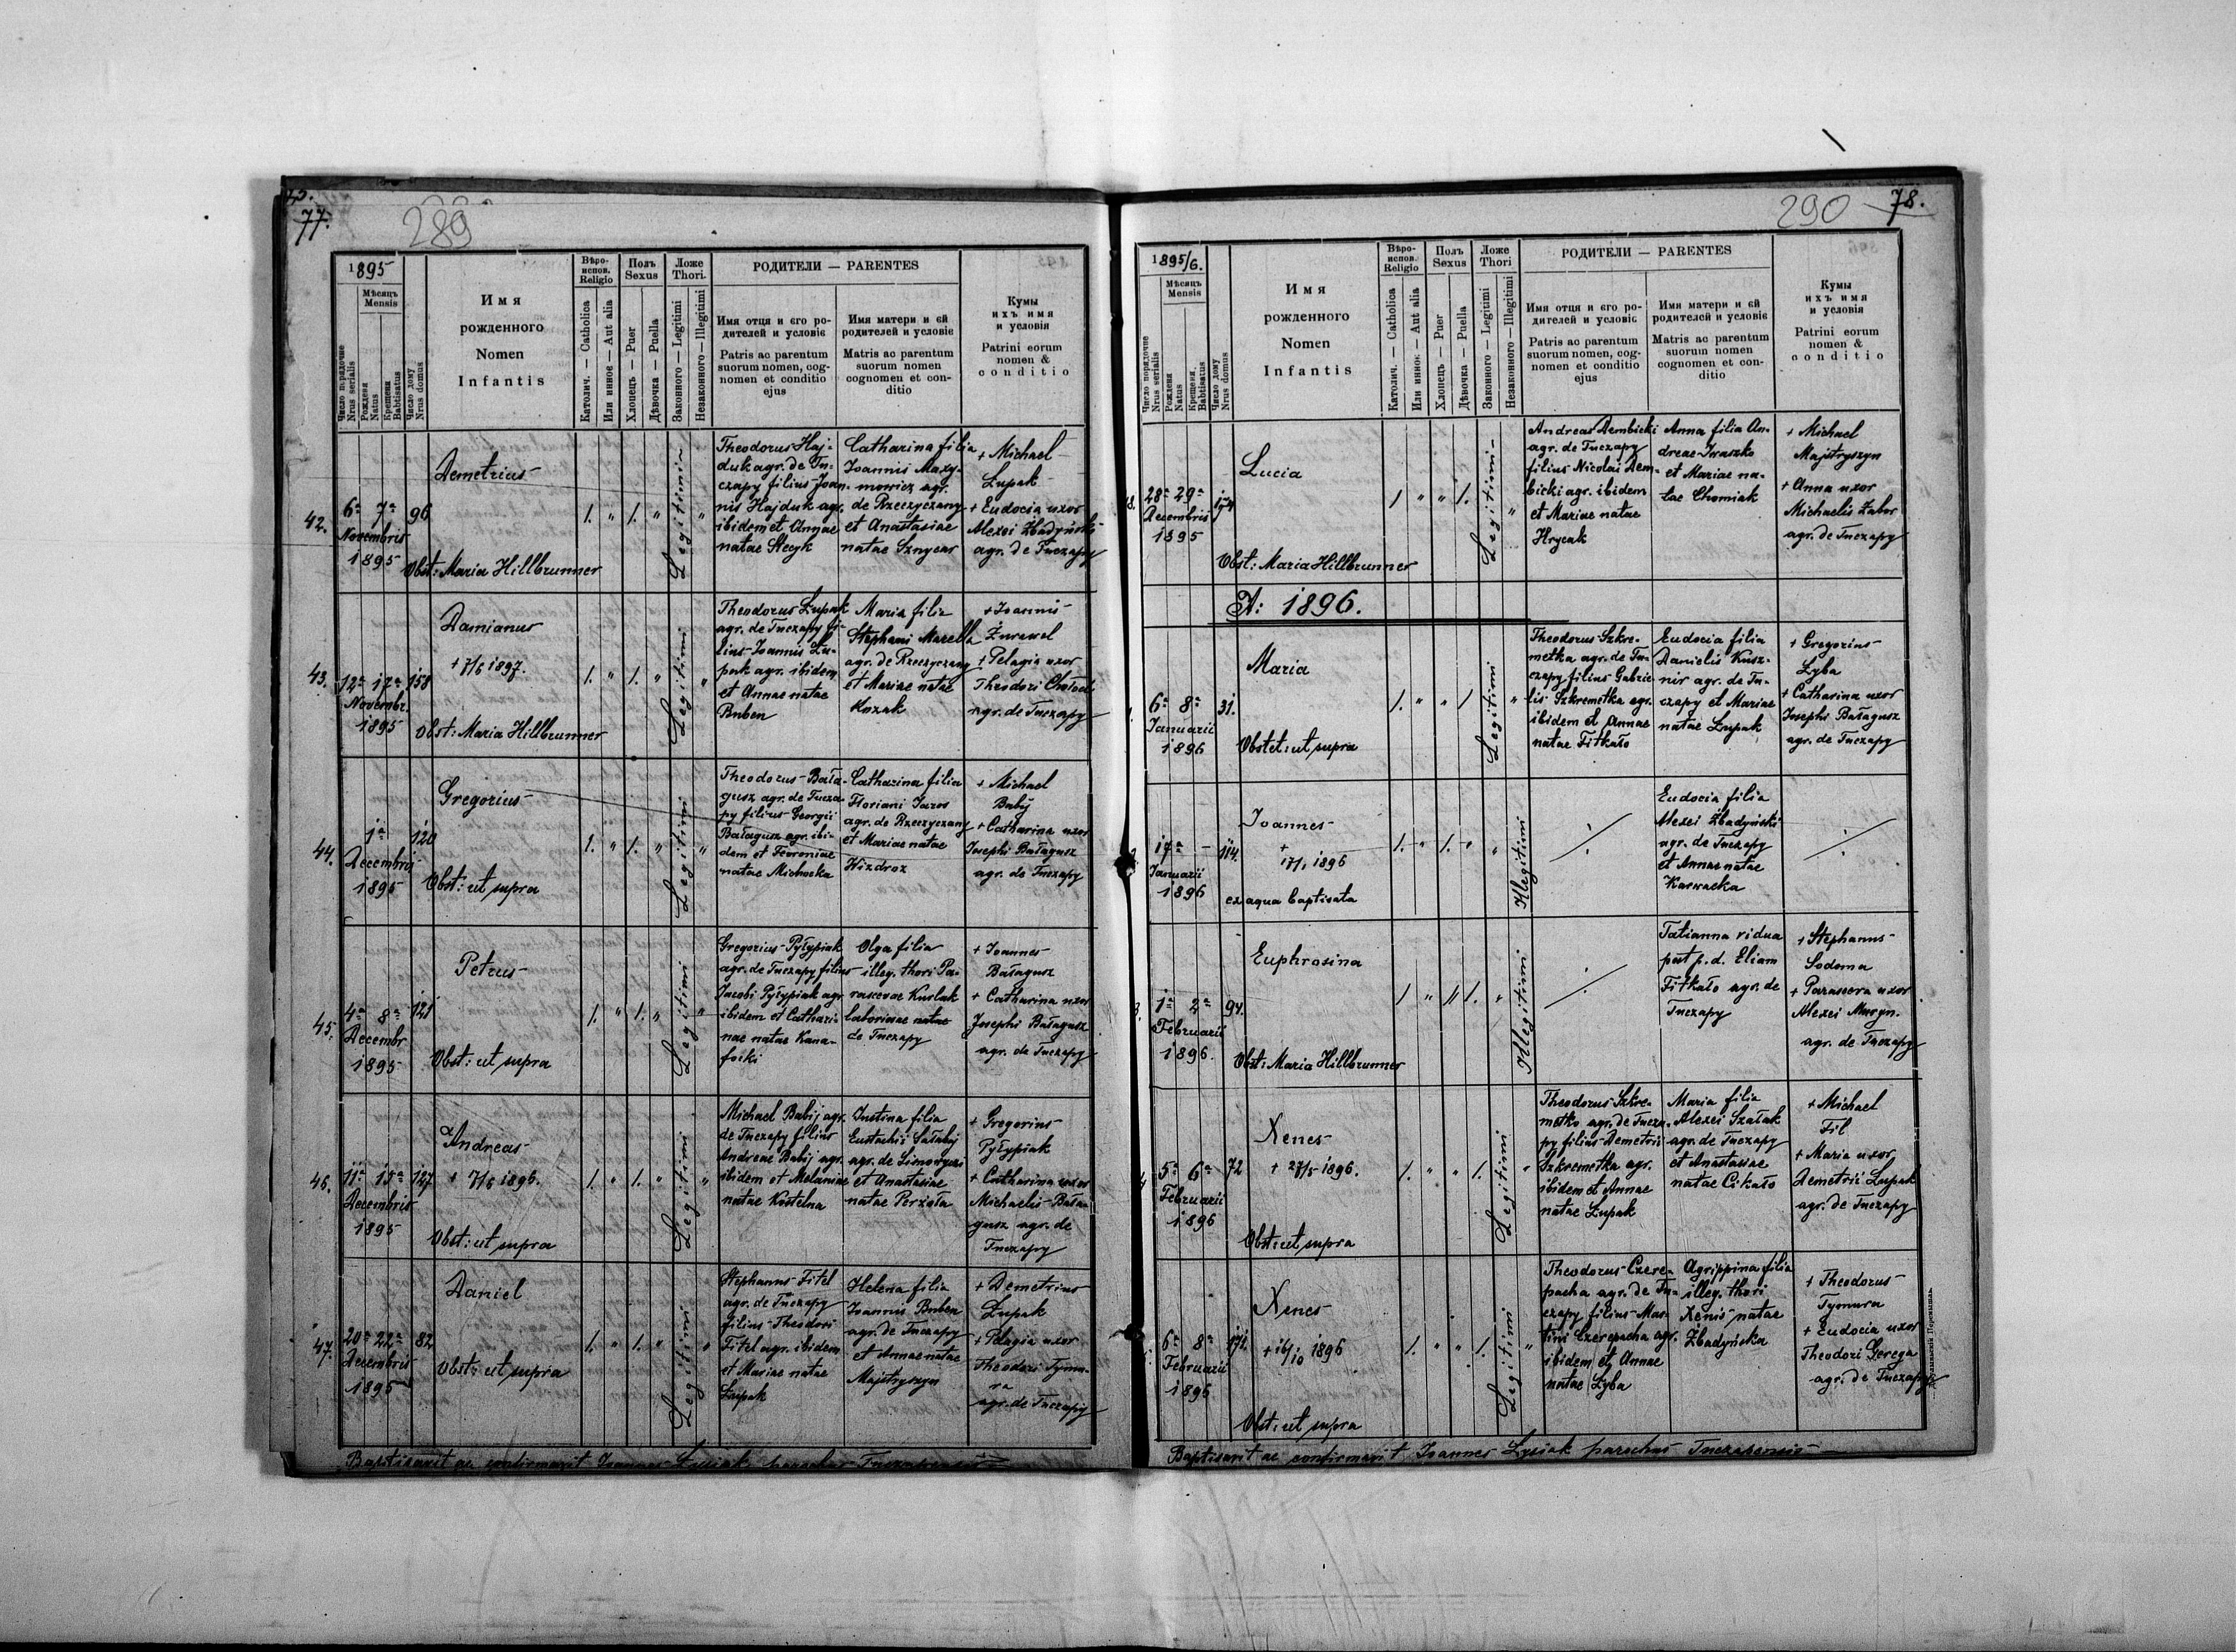 77.
289
1895
Мѣсяцъ
Mensis
Число порядочне
Nrus serialis
Рожденя
Natus
Крещеня
Babtisatus
Число дому
Nrus domus
Имя
рожденного
Nomen
Infantis
Вѣро-
испов.
Religio
Католич. — Catholica
Или инное — Aut alia
Полъ
Sexus
Хлопець — Puer
Дѣвочка — Puella
Ложе
Thori.
Законного — Legitimi
Незаконного — Illegitimi
РОДИТЕЛИ — PARENTES
Имя отця и єго ро-
дителей и условіє
Patris ac parentum
suorum nomen, cog-
nomen et conditio
ejus
Имя матери и єй
родителей и условіє
Matris ac parentum
suorum nomen
cognomen et con-
ditio
Кумы
ихъ имя
и условія
Patrini eorum
nomen &
conditio
42.
6ª 7ª
Novembris
1895
96
Demetrius
Obst: Maria Hillbrunner
1. " 1. "
Legitimi "
Theodorus Haj-
duk agr. de Tu-
czapy filius Joan-
nis Hajduk agr.
ibidem et Annae
natae Stecyk
Catharina filia
Joannis Maxy-
mowicz agr.
de Rzeczyczany
et Anastasiae
natae Sznycar
+ Michael
Łupak
+ Eudocia uxor
Alexei Zbadyński
agr. de Tuczapy
43.
12ª 17ª
Novembr.
1895
158
Damianus
+ 7/6 1897.
Obst: Maria Hillbrunner
1. " 1. "
Legitimi "
Theodorus Łupak
agr. de Tuczapy fi-
lius Joannis Łu-
pak agr. ibidem
et Annae natae
Buben
Maria filia
Stephani Marella
agr. de Rzeczyczany
et Mariae natae
Kozak
+ Joannis
Żurawel
+ Pelagia uxor
Theodori
agr. de Tuczapy
44.
1ª
Decembris
1895
120
Gregorius
Obst: ut supra
1. " 1. "
Legitimi "
Theodorus Bała-
gusz agr. de Tucza-
py filius Georgii
Bałagusz agr. ibi-
dem et Fevroniae
natae Michocka
Catharina filia
Floriani Jaros
agr. de Rzeczyczany
et Mariae natae
Hizdroz
+ Michael
Babij
+ Catharina uxor
Josephi Bałagusz
agr. de Tuczapy
45.
4ª 8ª
Decembr
1895
121
Petrus
Obst: ut supra
1. " 1. "
Legitimi "
Gregorius Pyłypiak
agr. de Tuczapy filius
Jacobi Pyłypiak agr.
ibidem et Cathari-
nae natae Kana-
foiki
Olga filia
illeg. thori Pa-
rascevae Kurlak
laboriae natae
de Tuczapy
+ Joannes
Bałagusz
+ Catharina uxor
Josephi Bałagusz
agr. de Tuczapy
46.
11ª 15ª
Decembris
1895
147
Andreas
+ 7/6 1896.
Obst: ut supra
1. " 1. "
Legitimi "
Michael Babij agr.
de Tuczapy filius
Andreae Babij agr.
ibidem et Melaniae
natae Kostelna
Justina filia
Eustachii Sałabaj
agr. de
et Anastasiae
natae Perxoła
+ Gregorius
Pyłypiak
+ Catharina uxor
Michaelis Bała-
gusz agr. de
Tuczapy
47.
20ª 22ª
Decembris
1895
82
Daniel
Obst: ut supra
1. " 1. "
Legitimi "
Stephanus Fitel
agr. de Tuczapy
filius Theodori
Fitel agr. ibidem
et Mariae natae
Łupak
Helena filia
Joannis Buben
agr. de Tuczapy
et Annae natae
Majstryszyn
+ Demetrius
Łupak
+ Pelagia uxor
Theodori Tymu-
ra
agr. de Tuczapy
Baptisavit ac confirmavit Joannes Łysiak parochus Tuczapensis
290
78.
1895/6.
Мѣсяцъ
Mensis
Число порядочне
Nrus serialis
Рожденя
Natus
Крещеня,
Babtisatus
Число дому
Nrus domus
Имя
рожденного
Nomen
Infantis
Вѣро-
испов.
Religio
Католич. — Catholica
Или иннє. — Aut alia
Полъ
Sexus
Хлопець — Puer
Дѣвочка — Puella
Ложе
Thori
Законного — Legitimi
Незаконного — Illegitimi
РОДИТЕЛИ — PARENTES
Имя отця и єго ро-
дителей и условіє
Patris ac parentum
suorum nomen, cog-
nomen et conditio
ejus
Имя матери и єй
родителей и условіє
Matris ac parentum
suorum nomen
cognomen et con-
ditio
Кумы
ихъ имя
и условія
Patrini eorum
nomen &
conditio
28ª 29ª
Decembris
1895
174
Lucia
Obst: Maria Hillbrunner
1 " " 1.
Legitimi "
Andreas Dembicki
agr. de Tuczapy
filius Nicolai Dem-
bicki agr. ibidem
et Mariae natae
Hrycak
Anna filia An-
dreae Iwaszko
et Mariae na-
tae Chomiak
+ Michael
Majstryszyn
+ Anna uxor
Michaelis Zabor
agr. de Tuczapy
A: 1896.
6ª 8ª
Januarii
1896
31.
Maria
Obstet: ut supra
1. " " 1
Legitimi "
Theodorus Szkre-
metka agr. de Tu-
czapy filius Gabrie-
lis Szkremetka agr.
ibidem et Annae
natae Fitkało
Eudocia filia
Danielis Kusz-
nir agr. de Tu-
czapy et Mariae
natae Łupak
+ Gregorius
Łyba
+ Catharina uxor
Josephi Bałagusz
agr. de Tuczapy
17ª -
Januarii
1896
114.
Joannes
+
17/1 1896
ex aqua baptisata
1. " 1. " "
Illegitimi
Eudocia filia
Alexei Zbadyński
agr. de Tuczapy
et Annae natae
Karwacka
1ª 2ª
Februarii
1896.
94.
Euphrosina
Obst: Maria Hillbrunner
1 " " 1. "
Illegitimi
Tatianna vidua
post p. d. Eliam
Fitkało agr. de
Tuczapy
+ Stephanus
Sodoma
+ Parascera uxor
Alexei Muryn.
agr. de Tuczapy
5ª 6ª
Februarii
1896
72
Xenes
+ 27/5 1896.
Obst: ut supra
1. " " 1.
Legitimi "
Theodorus Szkre-
metko agr. de Tucza-
py filius Demetrii
Szkremetka agr.
ibidem et Annae
natae Łupak
Maria filia
Alexei Szałak
agr. de Tuczapy
et Anastasiae
natae Cikało
+ Michael
Fil
+ Maria uxor
Demetrii Łupak
agr. de Tuczapy
6ª 8ª
Februarii
1896
171.
Xenes
+ 16/10 1896
Obst: ut supra
1. " " 1.
Legitimi "
Theodorus Czere-
pacha agr. de Tu-
czapy filius Mar-
tini Czerepacha agr.
ibidem et Annae
natae Łyba
Agrippina filia
illeg. thori
Xenis natae
Zbadyńska
+ Theodorus
Tymura
+ Eudocia uxor
Theodori Gerega
agr. de Tuczapy
Baptisavit ac confirmavit Joannes Łysiak parochus Tuczapensis